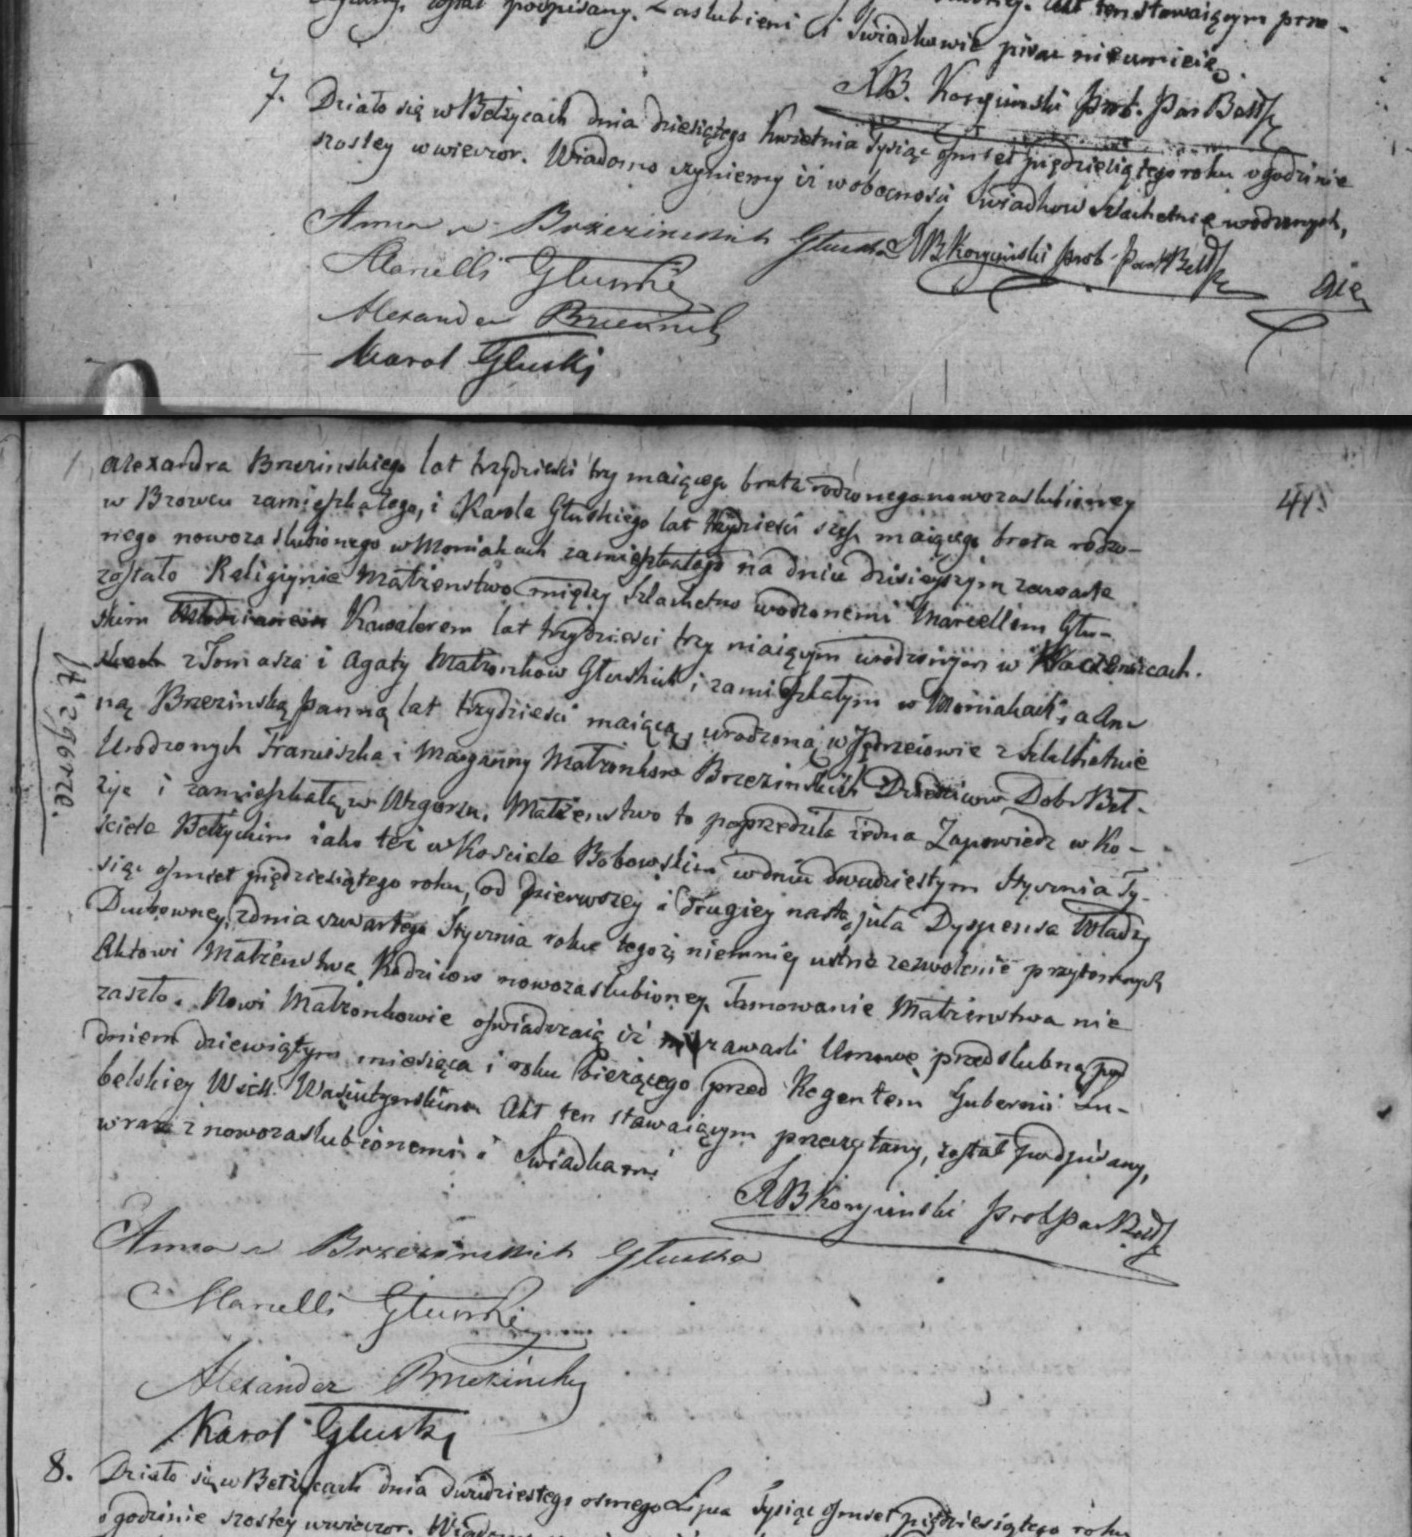 został podpisany. Zaslubieni i Swiadkowie pisac nieumieią. Akt ten stawaiącym prze-
XB. Korzyinski prob. Par Bełż
7. Działo się w Bełżycach dnia dziesiątego Kwietnia Tysiąc osmset pięćdziesiątego roku o godzinie
szostey w wieczor. Wiadomo czyniemy iż w obecnosci Swiadkow Szlachetnie urodzonych,
Anna z Brzezinskich Głuska XB Korzyinski prob. Par Bełż
Marcelli Głuski
Alexander Brzezinski
Karol Głuski
Alexandra Brzezinskiego lat trzydziesci try maiącego brata rodzonego nowozaslubioney
w Brzowcu zamięszkałego, i Karola Głuskiego lat trzydziesci szesc maiącego brata rodzo-
nego nowozaslubionego w Moniakach zamięszkałego na dniu dzisieyszym zawarte
zostało Religiynie Małżenstwo między Szlachetno urodzonemi Marcellem Głu-
skim Młodzianem Kawalerem lat trzydziesci trzy maiącym urodzonym w
z Tomasza i Agaty Małżonkow Głuskich i zamięszkałym w Moniakach, a An-
ną Brzezinską panną lat trzydziesci maiącą, urodzoną w Jędrzeiowie z Szlachetnie
Urodzonych Franciszka i Maryanny Małżonkow Brzezinskich Dziedzicow Dobr Beł-
życe i zamięszkałą w Wzgorzu. Małżenstwo to poprzedziła iedna Zapowiedz w Ko-
sciele Bełżyckim iako też w Kosciele Bobowskim w dniu dwudziestym Stycznia Ty-
siąc osmset pięćdziesiątego roku, od pierwszey i drugiey nastąpiła Dyspensa Władzy
Duchowney z dnia czwartego Stycznia roku tegoż niemniey ustne zezwolenie przytomnych
Aktowi Małżenstwa Rodzicow nowozaslubioney. Tamowanie Małżenstwa nie
zaszło. Nowi Małżonkowie oswiadczaią iż zawarli Umowę przedslubną pod
dniem dziewiątym miesiąca i roku bieżącego przed Regentem Gubernii Lu-
belskiey Wasiutynskim Akt ten stawaiącym przeczytany, został podpisany,
wraz z nowozaslubionemi i Swiadkami
XB Korzyinski prob Par Bełż
Anna z Brzezinskich Głuska
Marcelli Głuski
Alexander Brzezinsky
Karol Głuski
8. Działo się w Bełżycach dnia dwudziestego osmego Lipca Tysiąc osmset pięćdziesiątego roku
o godzinie szostey w wieczor.